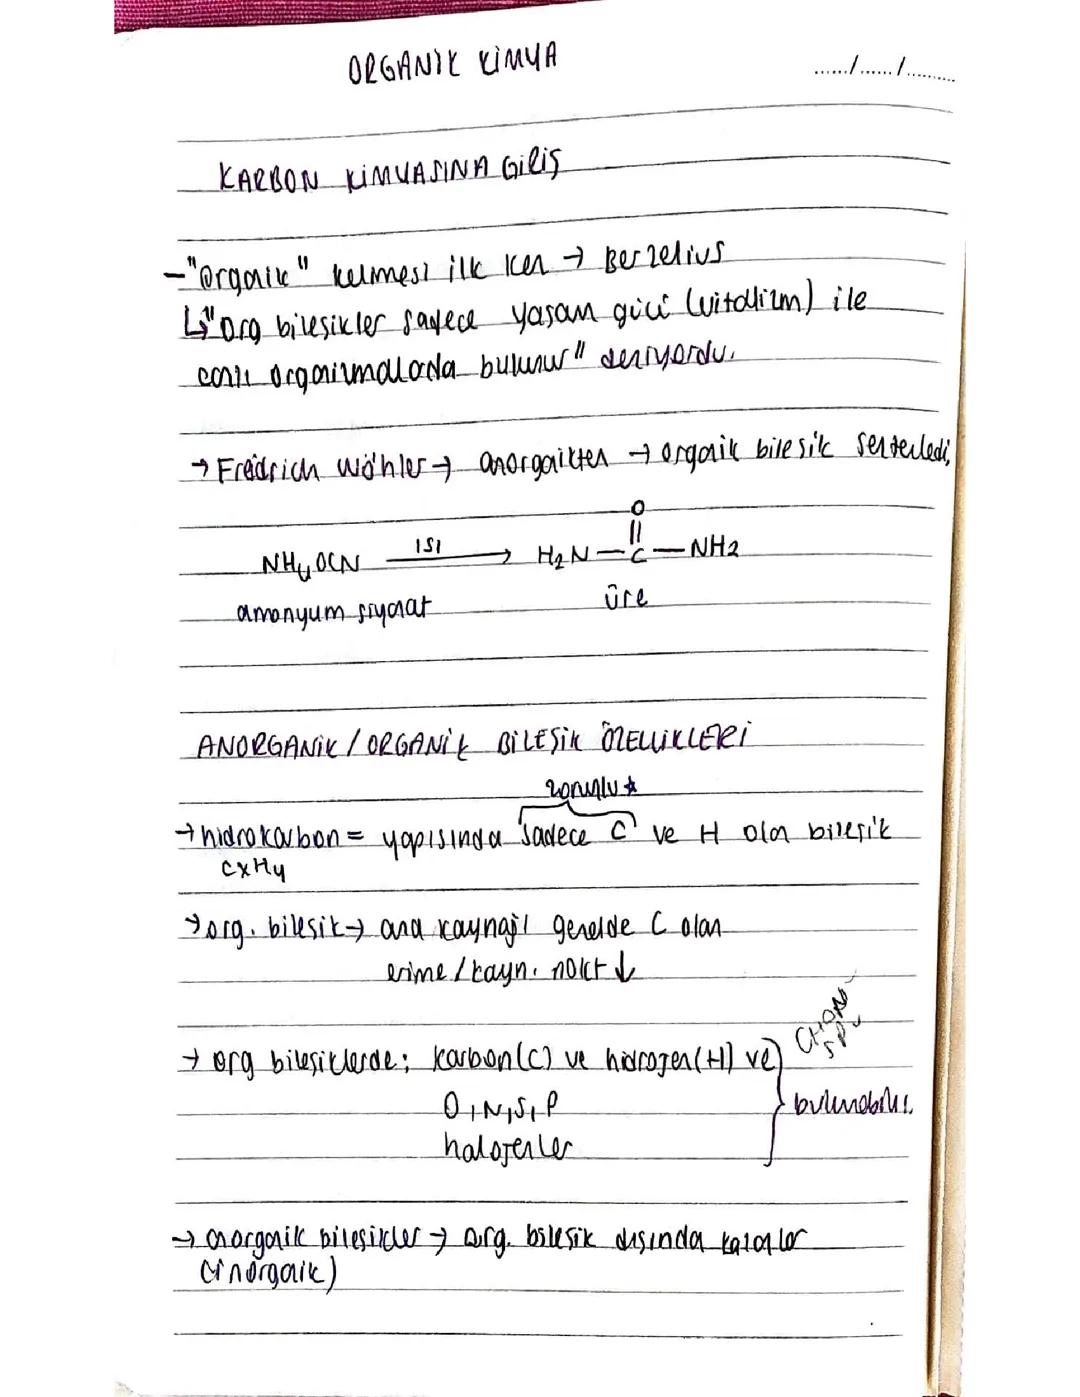 ORGANİK KİMYA
....../....../..........
KARBON KİMYASINA GİRİŞ
- "Organik" kelimesi ilk kez → Berzelius
↳ "Org bileşikler sadece yaşam gücü (vitalizm) ile
canlı organizmalarda bulunur" deniyordu.
→ Friedrich Wöhler → anorganikten → organik bileşik sentezledi,
O
||
NH4OCN ısı → H2N – C – NH2
amonyum siyanat üre
ANORGANİK / ORGANİK BİLEŞİK ÖZELLİKLERİ
zorunlu ★
→ hidrokarbon = yapısında sadece C ve H olan bileşik
CxHy
→ org. bileşik → ana kaynağı genelde C olan
erime / kayn. nokt ↓
→ org bileşiklerde; karbon(C) ve hidrojen(H) ve
CHON
SP
O, N, S, P
bulunabilir.
halojenler
→ anorganik bileşikler → org. bileşik dışında kalanlar
(inorganik)